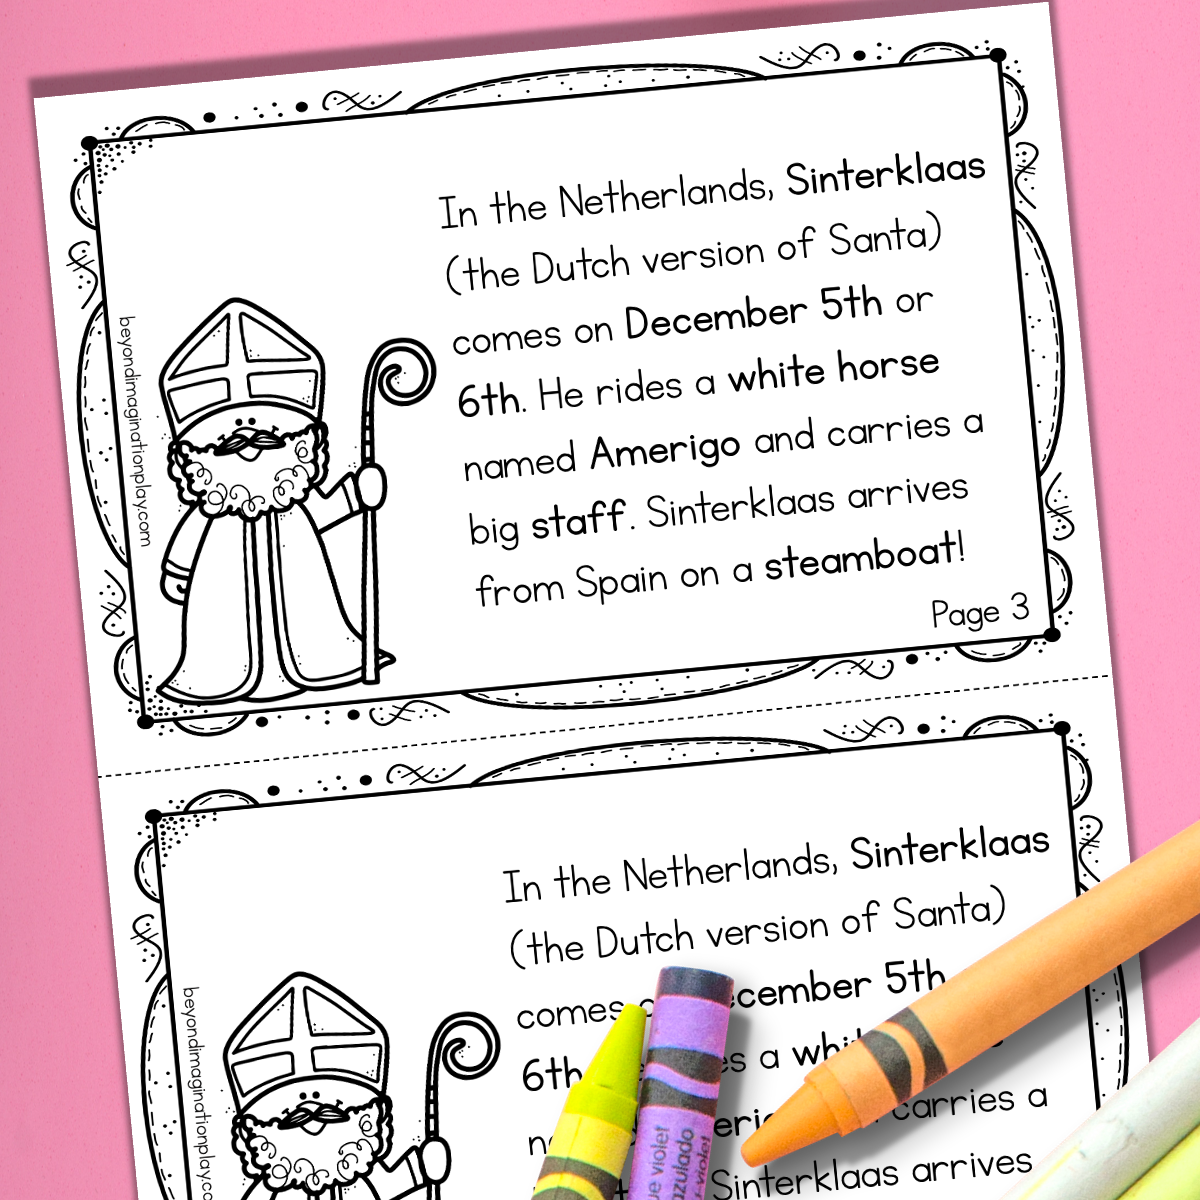 In the Netherlands, Sinterklaas
(the Dutch version of Santa)
comes on December 5th or
6th. He rides a white horse
named Amerigo and carries a
big staff. Sinterklaas arrives
from Spain on a steamboat!
Page 3
beyondimaginationplay.com
In the Netherlands, Sinterklaas
(the Dutch version of Santa)
comes 5th
6th a
carries a
Sinterklaas arrives
violet